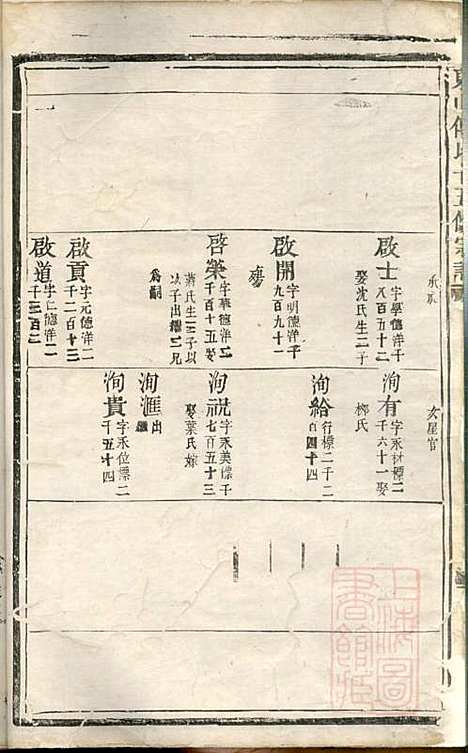 啟士 字學德洋千
八百五十二
娶沈氏生二子
啟開 字明德洋千
九百九十一
啓榮 字華德洋二
千百十五娶
蕭氏生三子以
以子出繼二兄
為嗣
啟貢 字元德洋二
千二百十三
啟道 字仁德洋二
千三百二
洵有 字永材標二
千六十一娶
柳氏
洵給 行標二千二
百四十四
洵祝 字永美標千
七百五十三
娶葉氏嫁
洵滙 出繼
洵貴 字永位標二
千五十四
上海圖書館藏